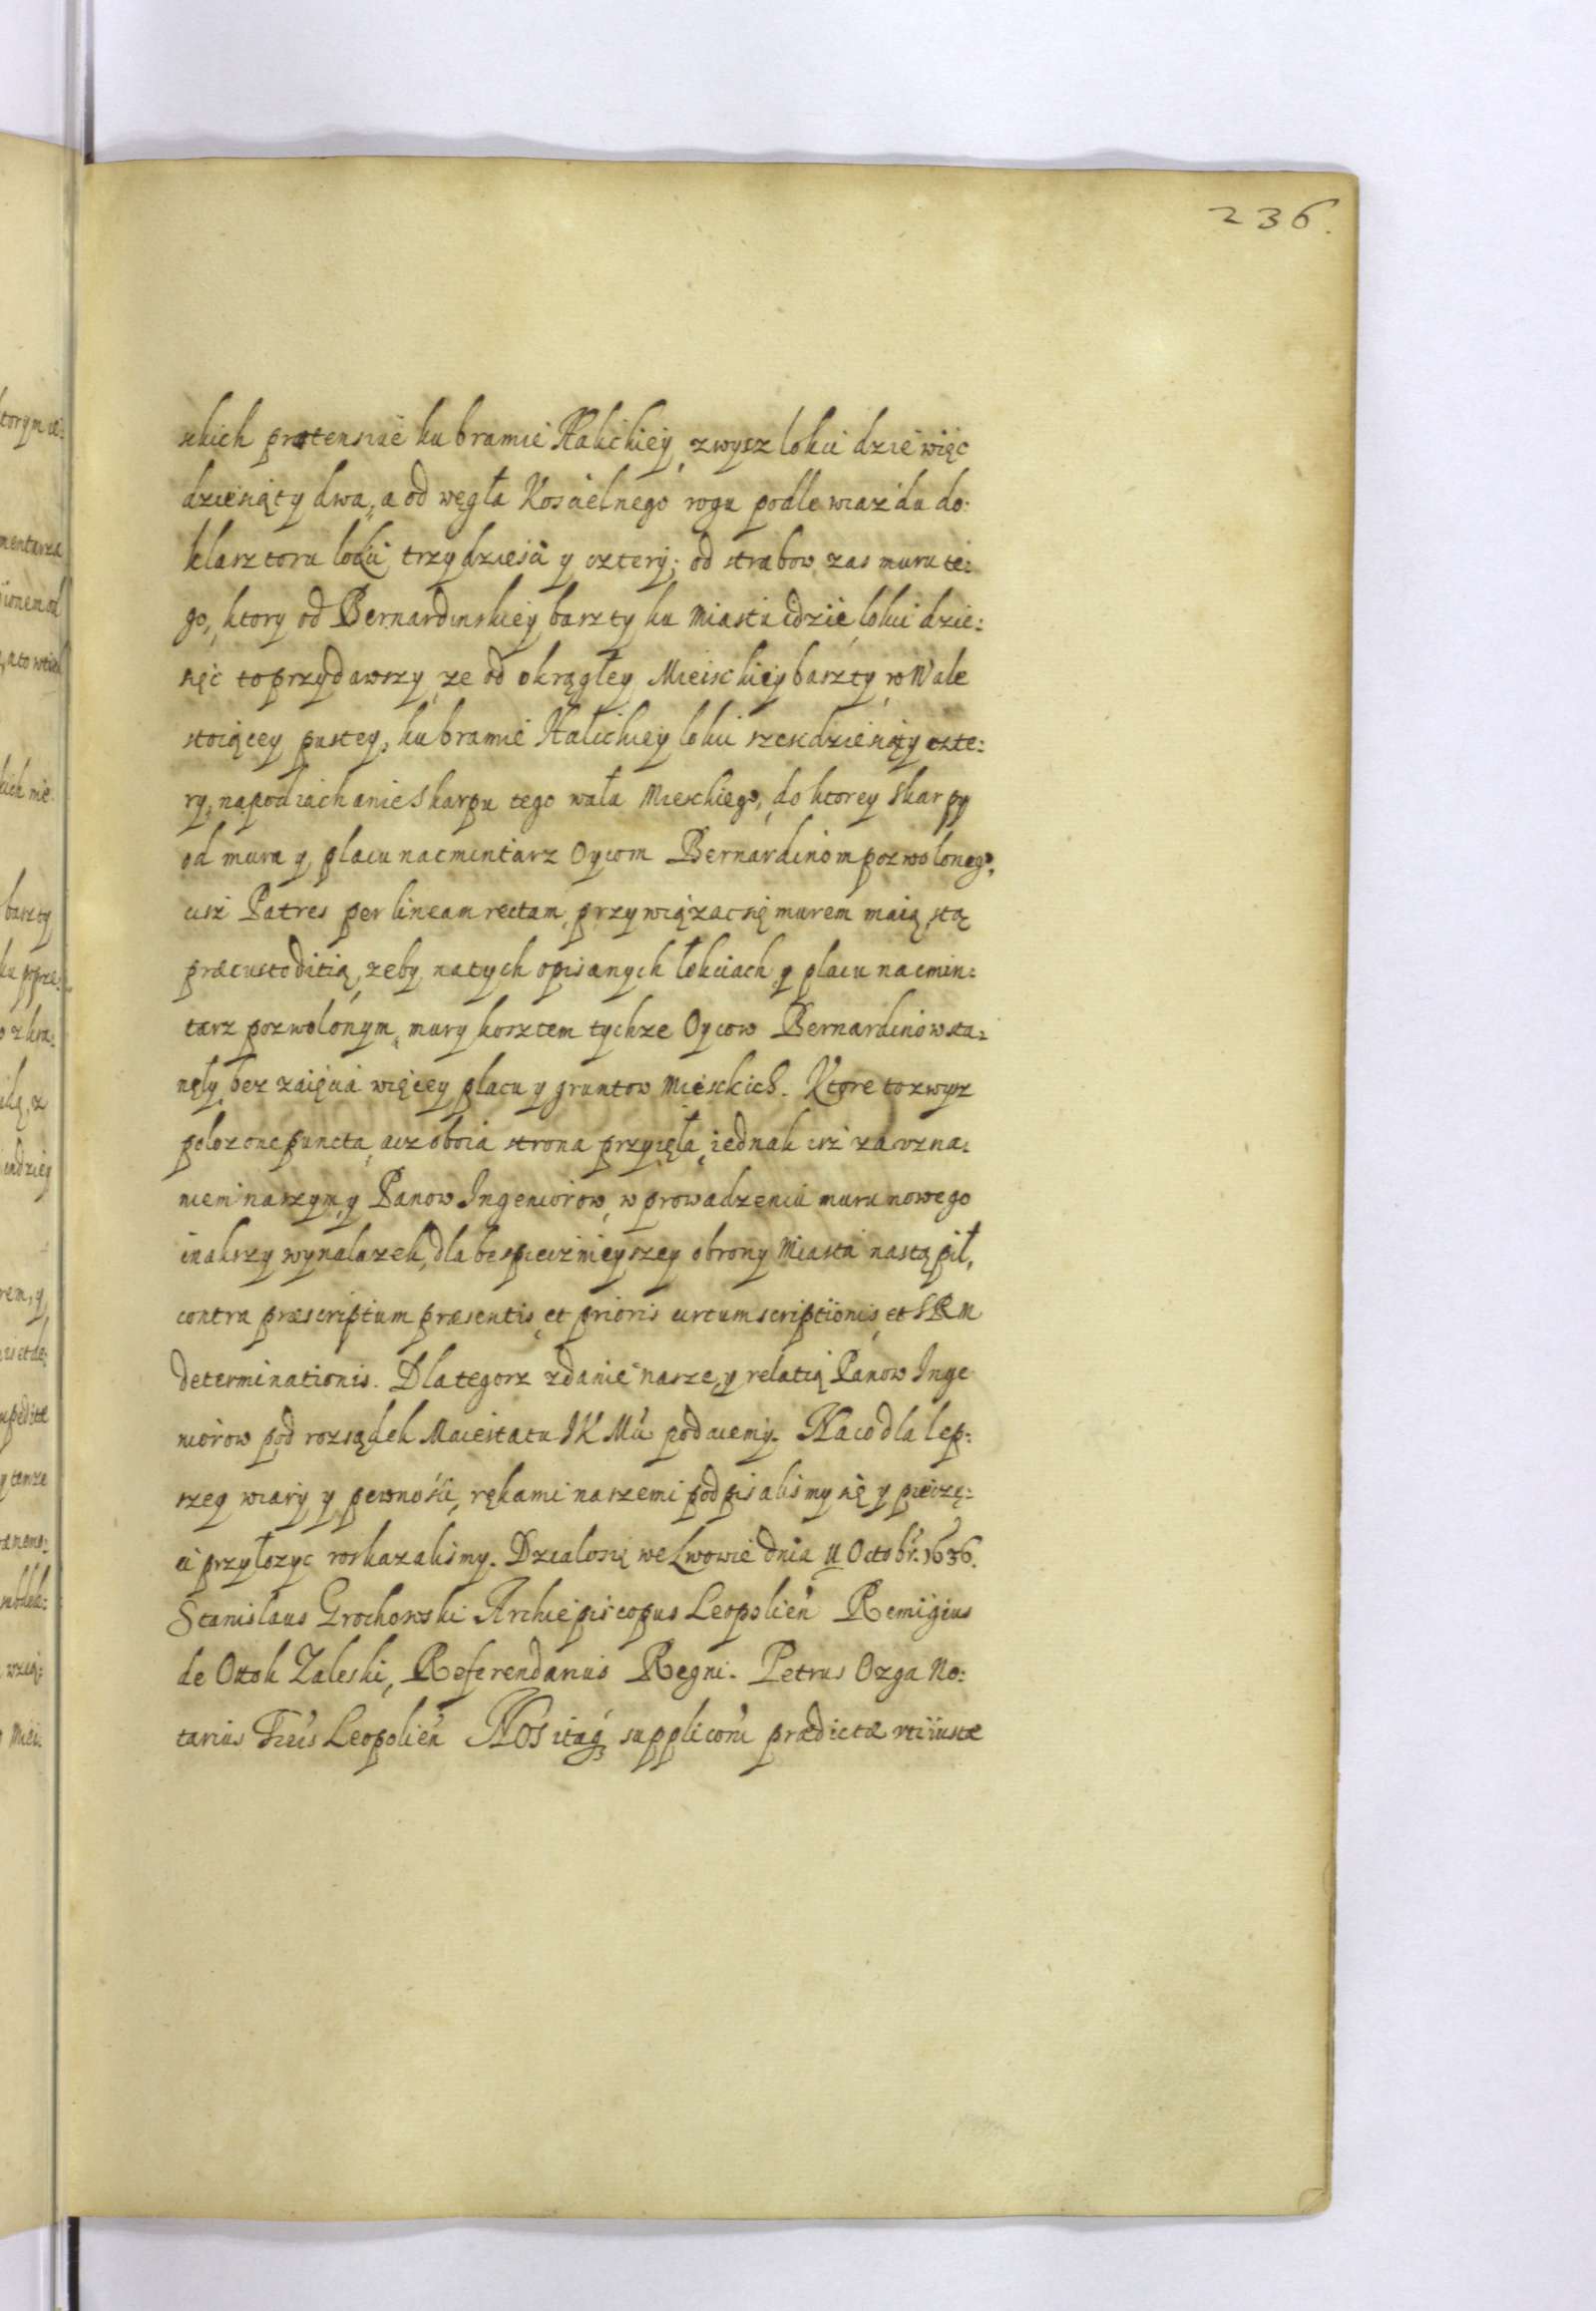 236.
skich protensiae ku bramie Halickiey, zwysz lokci dziewięc
dziesiąty dwa, a od węgła Koscielnego rogu podle wiazdu do:
klasztoru lokci trzydziesci y cztery; od strabow zas muru te:
go, ktory od Bernardinskiey baszty ku Miastu idzie, lokci dzie:
sięc to przydawszy, ze od okrągłey Mieiskiey baszty, w Wale
stoiącey pustey, ku bramie Halickiey lokci szescdziesiąt y czte:
ry, na pociachanie Skarpu tego wału Mieskiego, do ktorey Skarpy
od muru y placu na cmintarz Oycom Bernardinom pozwolonego,
cisz Patres per lineam rectam, przywiązac się murem maią, s tą
præcustoditią, zeby na tych opisanych łokciach y placu na cmin:
tarz pozwolonym, mury kosztem tychze Oycow Bernardinow sta:
nęły, bez zaięcia więcey placu y gruntow Mieskich. Ktore to zwysz
polozone puncta, acz oboia strona przyięła, iednak isz za uzna:
niem naszym, y Panow Ingeniorow, w prowadzeniu muru nowego
inakszy wynalazek, dla bespieczniejszey obrony Miasta nastąpił,
contra præscriptum præsentis, et prioris circumscriptionis, et SRM
determinationis. Dlategosz zdanie nasze, y relatią Panow Inge
niorow pod rozsądek Maiestatu JK Mci podaiemy. Na co dla lep:
szey wiary y pewności, rękami naszemi podpisalismy się y pieczę:
ci przyłozyc roskazalismy. Dzialo się we Lwowie dnia 11 Octobr. 1636.
Stanislaus Grochowski Archiepiscopus Leopolien Remigius
de Otok Zaleski, Referendarius Regni. Petrus Ozga No:
tarius Leopolien NOS itaq3 suppliconi prædictæ uti iustæ